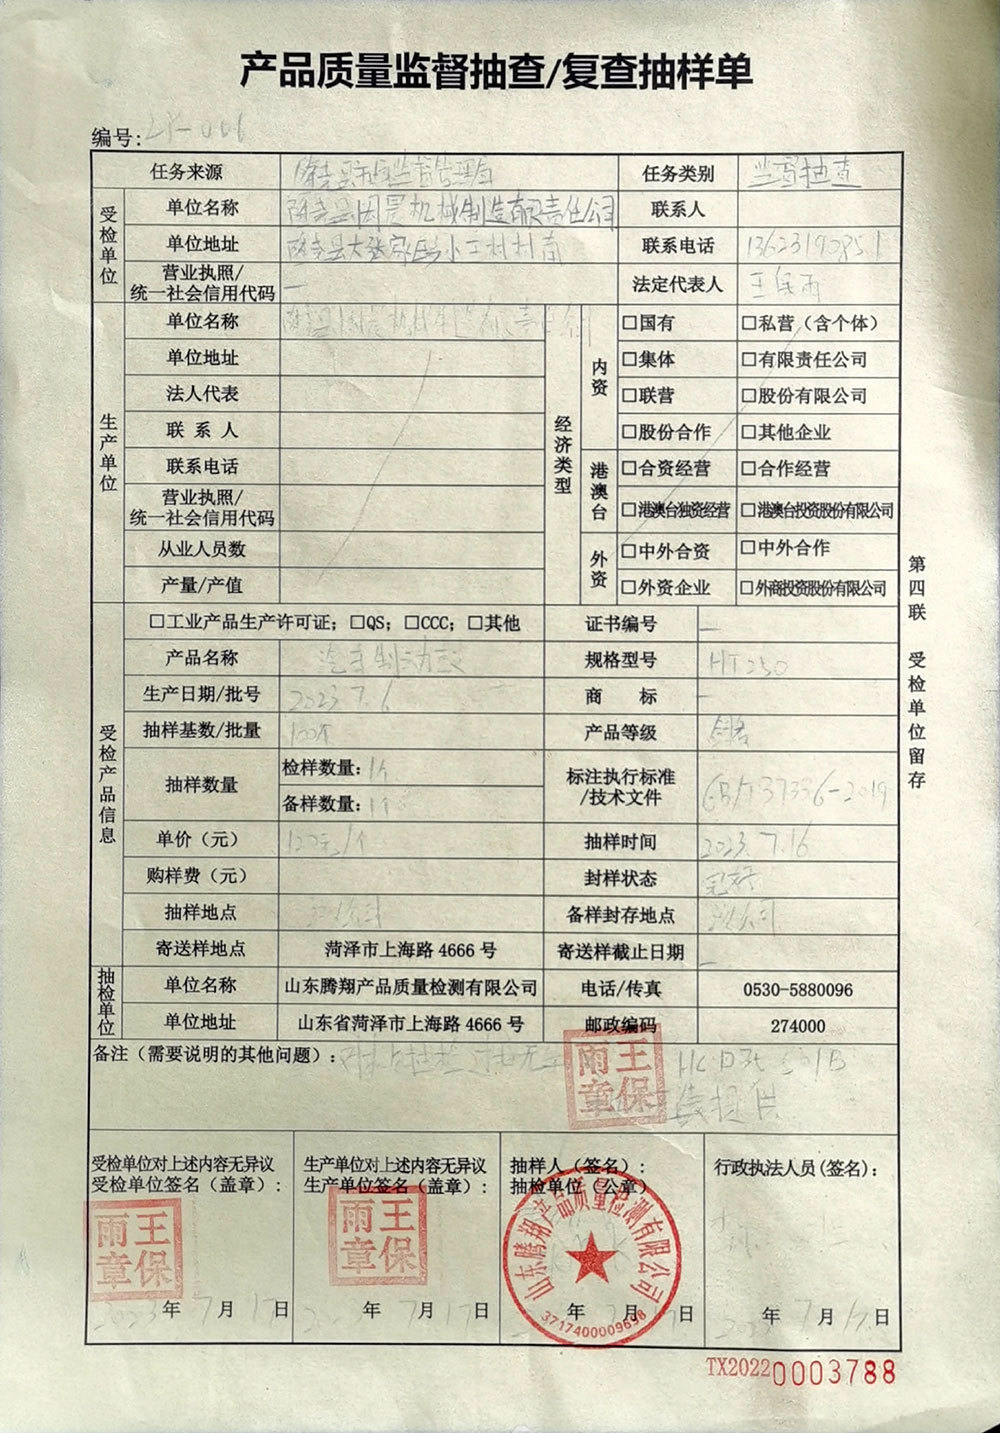 产品质量监督抽查/复查抽样单
编号:
任务来源 任务类别 监督抽查
受检单位
单位名称 机械制造有限责任公司 联系人
单位地址 联系电话
营业执照/统一社会信用代码 — 法定代表人 王保雨
生产单位
单位名称
单位地址
法人代表
联系人
联系电话
营业执照/统一社会信用代码
从业人员数
产量/产值
经济类型
内资 □国有 □私营（含个体）
□集体 □有限责任公司
□联营 □股份有限公司
□股份合作 □其他企业
港澳台 □合资经营 □合作经营
□港澳台独资经营 □港澳台投资股份有限公司
外资 □中外合资 □中外合作
□外资企业 □外商投资股份有限公司
受检产品信息
□工业产品生产许可证；□QS；□CCC；□其他 证书编号 —
产品名称 汽车制动 规格型号 HT250
生产日期/批号 2023.7.6 商 标 —
抽样基数/批量 100 产品等级 合格
抽样数量 检样数量：1个 标注执行标准/技术文件 GB/T 37336-2019
备样数量：1个
单价（元） 120元/个 抽样时间 2023.7.16
购样费（元） 封样状态 完好
抽样地点 备样封存地点
寄送样地点 菏泽市上海路 4666 号 寄送样截止日期 —
抽检单位
单位名称 山东腾翔产品质量检测有限公司 电话/传真 0530-5880096
单位地址 山东省菏泽市上海路 4666 号 邮政编码 274000
备注（需要说明的其他问题）：
提供
王保雨章
受检单位对上述内容无异议
受检单位签名（盖章）：
王保雨章
2023年7月17日
生产单位对上述内容无异议
生产单位签名（盖章）：
王保雨章
年7月17日
抽样人（签名）：
抽检单位（公章）
山东腾翔产品质量检测有限公司
3717400009698
年7月17日
行政执法人员(签名)：
年7月17日
第四联 受检单位留存
TX20220003788